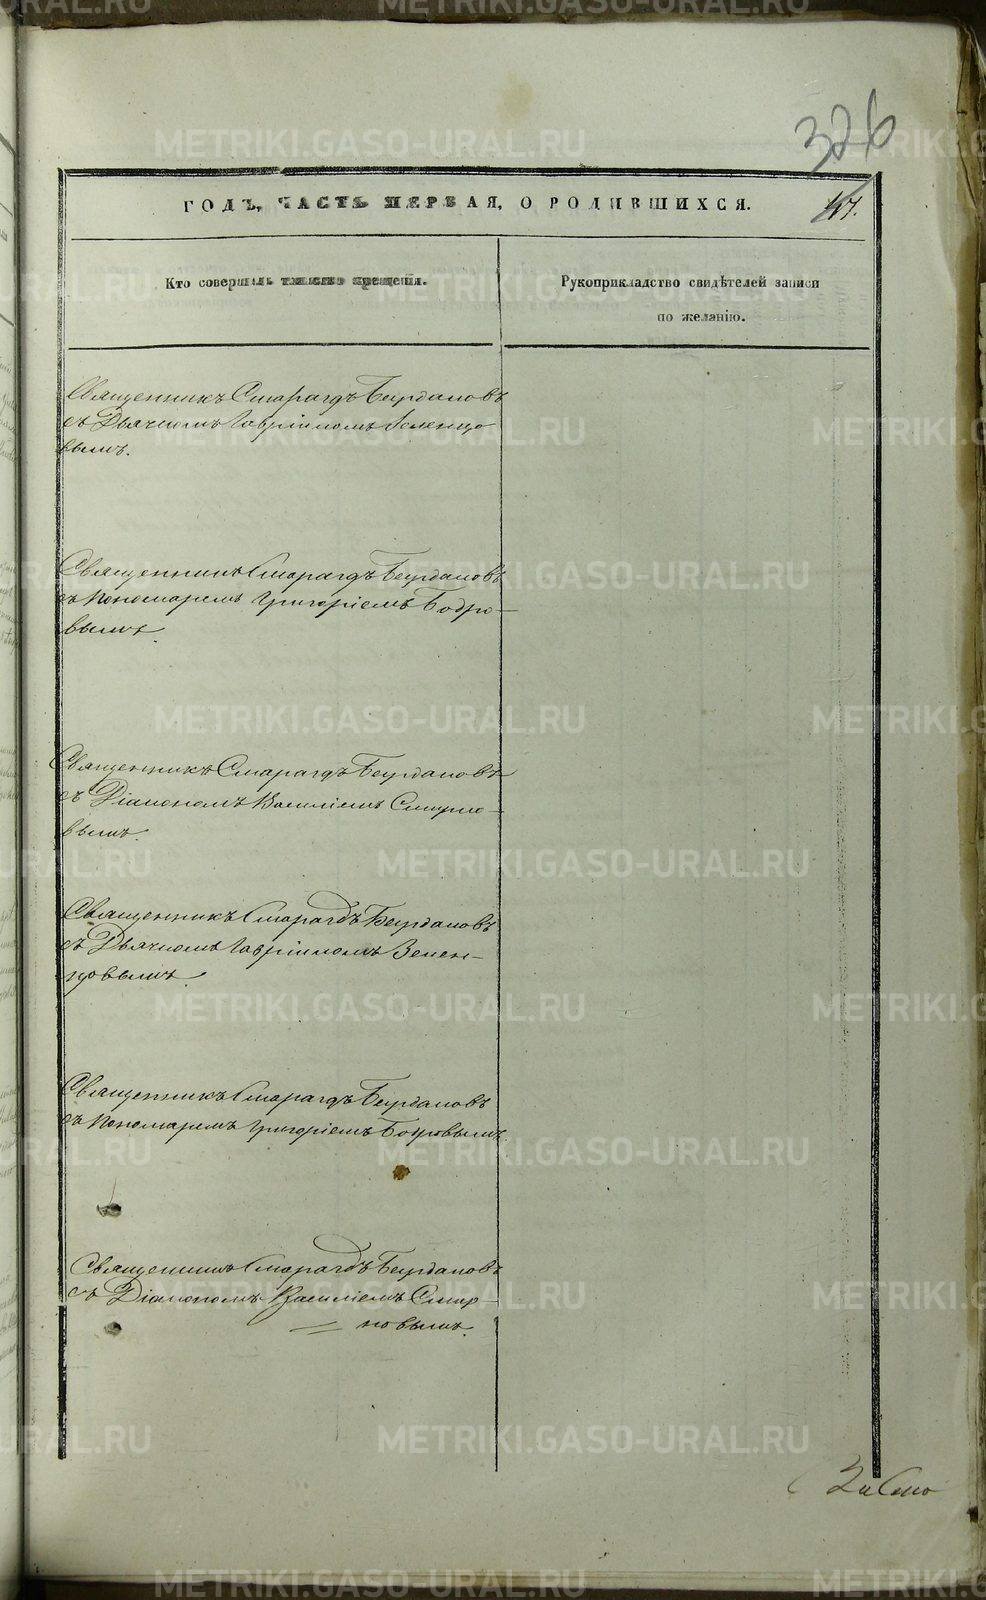 326
ГОДЪ, ЧАСТЬ ПЕРВАЯ, О РОДИВШИХСЯ.
47.
Кто совершалъ таинство крещенія.
Рукоприкладство свидѣтелей записи
по желанію.
Священникъ Смарагдъ Бурдановъ
съ Дьячкомъ Гавріиломъ Зеленцо
вымъ.
Священникъ Смарагдъ Бурдановъ
съ Пономаремъ Григоріемъ Бобро-
вымъ.
Священникъ Смарагдъ Бурдановъ
съ Діакономъ Василіемъ Смирно-
вымъ.
Священникъ Смарагдъ Бурдановъ
съ Дьячкомъ Гавріиломъ Зелен-
цовымъ.
Священникъ Смарагдъ Бурдановъ
съ Пономаремъ Григоріемъ Бобровымъ.
Священникъ Смарагдъ Бурдановъ
съ Діакономъ Василіемъ Смир-
новымъ.
METRIKI.GASO-URAL.RU